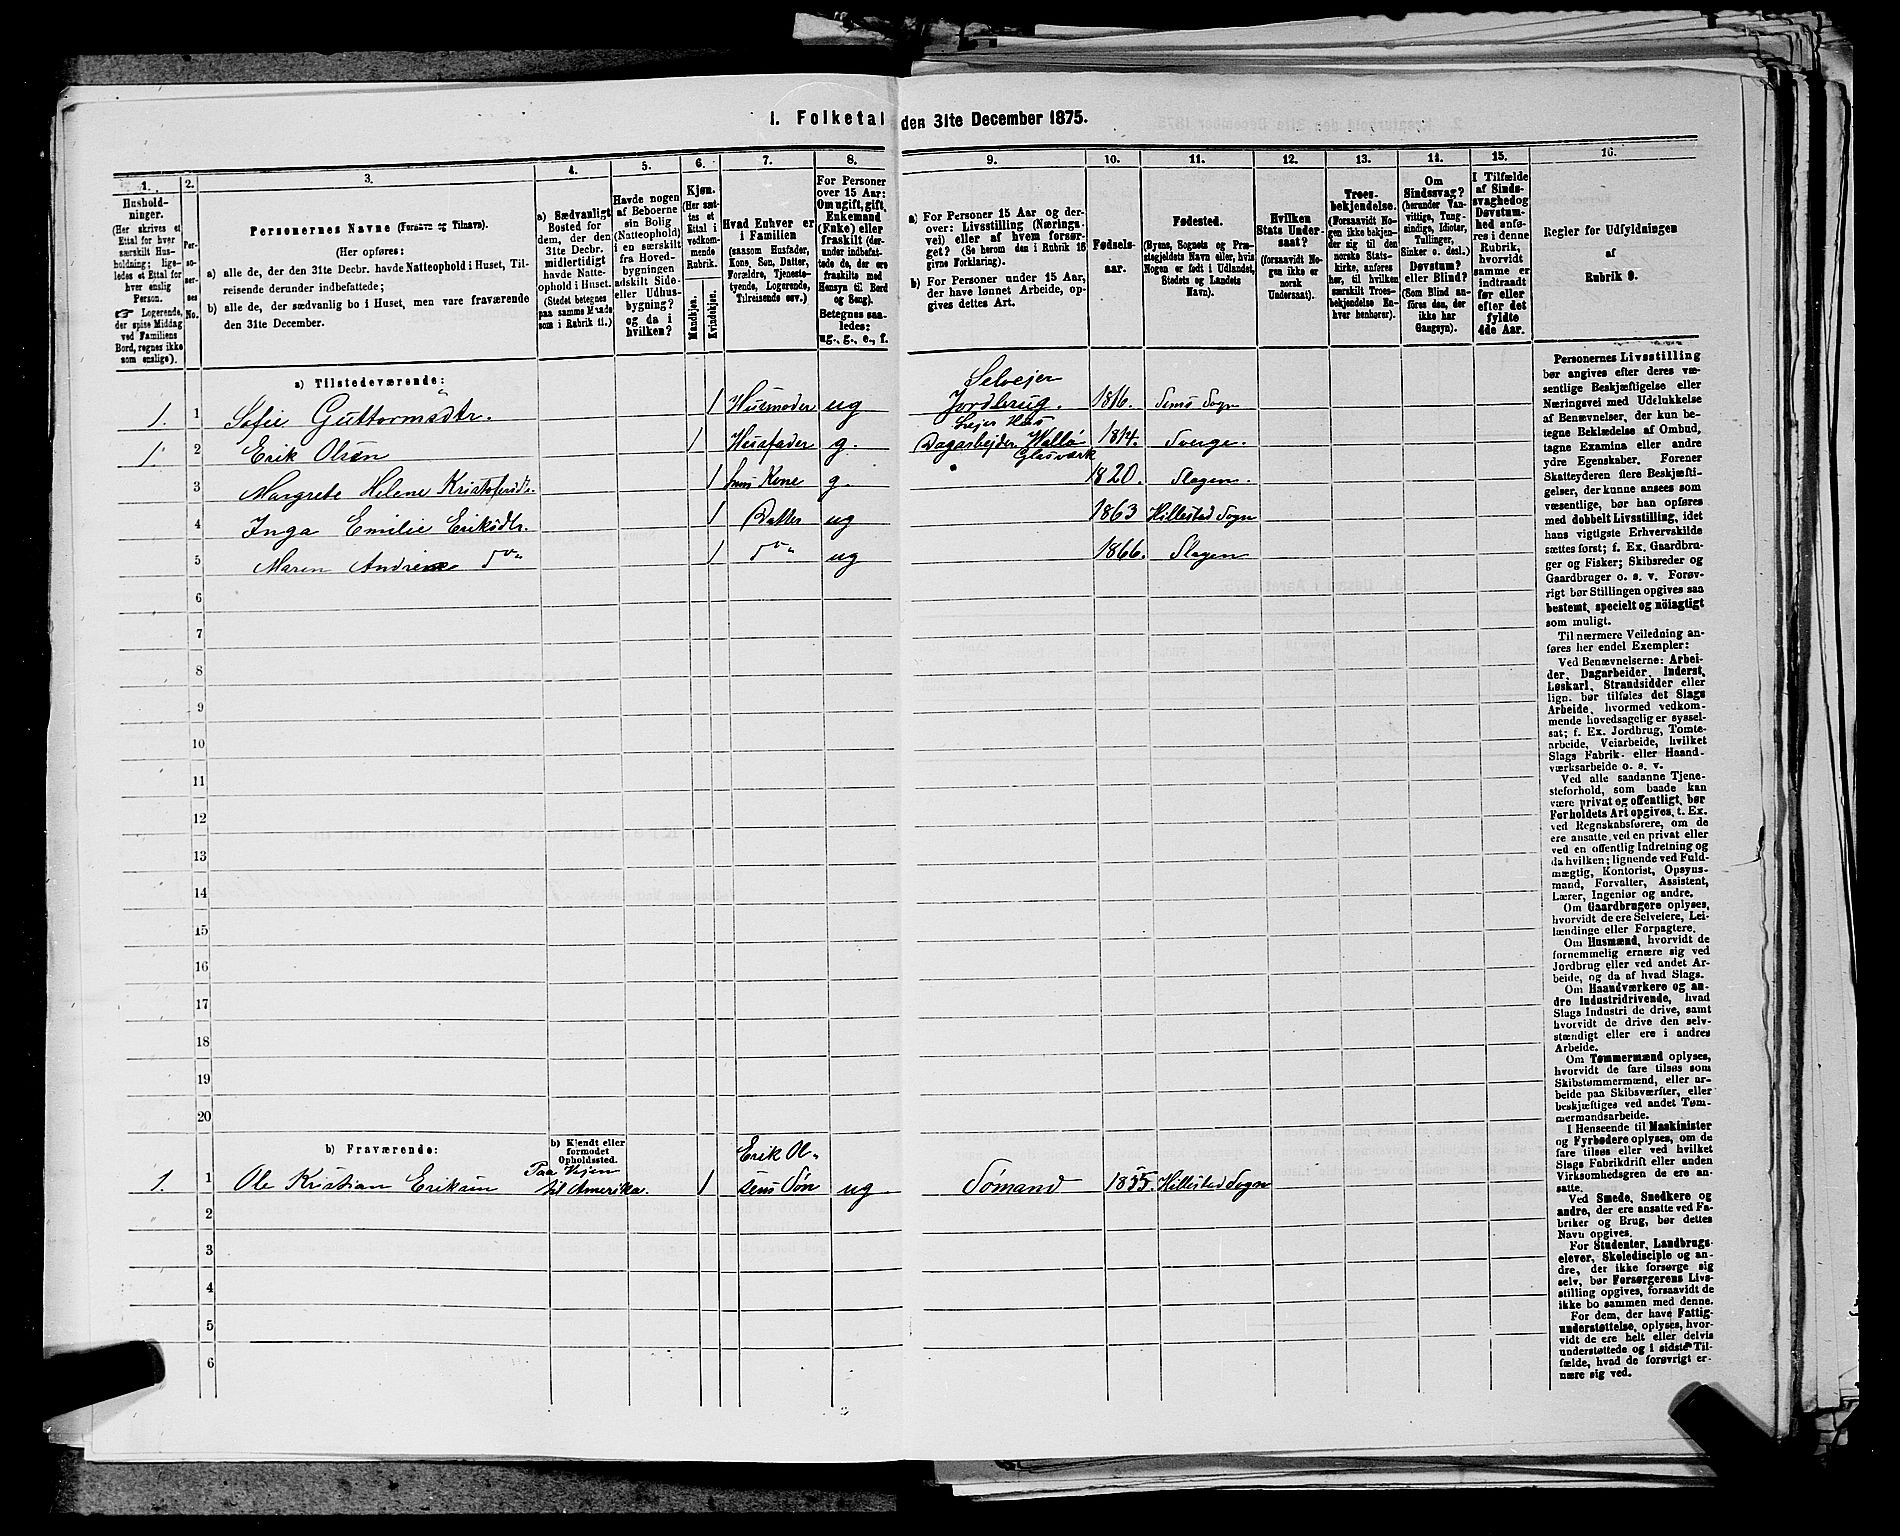 1. Folketal den 31te December 1875.
1.
Hushold-
ninger.
(Her skrives et
Ettal for hver
særskilt Hus-
holdning; lige-
ledes et Ettal for
hver enslig
Person.
☛ Logerende,
der spise Middag
ved Familiens
Bord, regnes ikke
som enslige).
2.
Per-
so-
ner-
nes
No.
3.
Personernes Navne (Fornavn og Tilnavn).
(Her opføres:
a) alle de, der den 31te Decbr. havde Natteophold i Huset, Til-
reisende derunder indbefattede;
b) alle de, der sædvanlig bo i Huset, men vare fraværende
den 31te December.
4.
a) Sædvanligt
Bosted for
dem, der den
31te Decbr.
midlertidigt
havde Natte-
ophold i Huset.
(Stedet betegnes
paa samme Maade
som i Rubrik 11.)
5.
Havde nogen
af Beboerne
sin Bolig
(Natteophold)
i en særskilt
fra Hoved-
bygningen
adskilt Side-
eller Udhus-
bygning?
og da i
hvilken?
6.
Kjøn.
(Her sæt-
tes et
Ettal i
vedkom-
mende
Rubrik.
Mandkjøn.
Kvindekjøn.
7.
Hvad Enhver er
i Familien
(saasom Husfader,
Kone, Søn, Datter,
Forældre, Tjeneste-
tyende, Logerende,
Tilreisende osv.)
8.
For Personer
over 15 Aar:
Om ugift, gift,
Enkemand
(Enke) eller
fraskilt (der-
under indbefat-
tede de, der ere
fraskilte med
Hensyn til Bord
og Seng).
Betegnes saa-
ledes:
ug., g., e., f.
9.
a) For Personer 15 Aar og der-
over: Livsstilling (Nærings-
vei) eller af hvem forsør-
get? (Se herom den i Rubrik 16
givne Forklaring).
b) For Personer under 15 Aar,
der have lønnet Arbeide, op-
gives dettes Art.
10.
Fødsels-
aar.
11.
Fødested.
(Byens, Sognets og Præ-
stegjeldets Navn eller, hvis
Nogen er født i Udlandet,
Stedets og Landets
Navn).
12.
Hvilken
Stats Under-
saat?
(forsaavidt No-
gen ikke er
norsk
Undersaat).
13.
Troes-
bekjendelse.
(Forsaavidt No-
gen ikke bekjen-
der sig til den
norske Stats-
kirke, anføres
her, til hvilken
særskilt Troes-
bekjendelse En-
hver henhører).
14.
Om
Sindssvag?
(herunder Van-
vittige, Tung-
sindige, Idioter,
Tullinger,
Sinker o. desl.)
Døvstum?
eller Blind?
(Som Blind an-
føres den, der
ikke har
Gangsyn).
15.
I Tilfælde
af Sinds-
svaghed og
Døvstum-
hed anfø-
res i denne
Rubrik,
hvorvidt
samme er
indtraadt
før eller
efter det
fyldte
4de Aar.
16.
Regler for Udfyldningen
af
Rubrik 9.
a) Tilstedeværende:
1. 1 Sofie Guttormsdtr. 1 Husmoder ug Selveier Jordbrug. 1816. Sems Sogn
1. 2 Erik Olsen 1 Husfader g. Leier Hus Dagarbejder Vallø Glasværk 1814. Sverge.
3 Margrete Helene Kristofersdtr. 1 hans Kone g. 1820. Slagen.
4 Inga Emilie Eriksdtr. 1 Datter ug 1863 Hillestad Sogn
5 Maren Andrine do 1 do ug 1866. Slagen
6
7
8
9
10
11
12
13
14
15
16
17
18
19
20
b) Fraværende:
b) Kjendt eller
formodet
Opholdssted.
1. 1 Ole Kristian Eriksen Paa Vejen til Amerika. 1 Erik Ol-
sens Søn ug Sømand 1855. Hillestad Sogn
2
3
4
5
6
Personernes Livsstilling
bør angives efter deres væ-
sentlige Beskjæftigelse eller
Næringsvei med Udelukkelse
af Benævnelser, der kun be-
tegne Beklædelse af Ombud,
tagne Examina eller andre
ydre Egenskaber. Forener
Skatteyderen flere Beskjæfti-
gelser, der kunne ansees som
væsentlige, bør han opføres
med dobbelt Livsstilling, idet
hans vigtigste Erhvervskilde
sættes først; f. Ex. Gaardbru-
ger og Fisker; Skibsreder og
Gaardbruger o. s. v. Forøv-
rigt bør Stillingen opgives saa
bestemt, specielt og nöiagtigt
som muligt.
Til nærmere Veiledning an-
føres her endel Exempler:
Ved Benævnelserne: Arbei-
der, Dagarbeider, Inderst,
Løskarl, Strandsidder eller
lign. bør tilføies det Slags
Arbeide, hvormed vedkom-
mende hovedsagelig er syssel-
sat; f. Ex. Jordbrug, Tomte-
arbeide, Veiarbeide, hvilket
Slags Fabrik- eller Haand-
værksarbeide o. s. v.
Ved alle saadanne Tjene-
steforhold, som baade kan
være privat og offentligt, bør
Forholdets Art opgives, t. Ex.
ved Regnskabsførere, om de
ere ansatte ved en privat eller
ved en offentlig Indretning og
da hvilken; lignende ved Fuld-
mægtig, Kontorist, Opsyns-
mand, Forvalter, Assistent,
Lærer, Ingeniør og andre.
Om Gaardbrugere oplyses,
hvorvidt de ere Selveiere, Lei-
lændinge eller Forpagtere.
Om Husmænd, hvorvidt de
fornemmelig ernære sig ved
Jordbrug eller ved andet Ar-
beide, og da af hvad Slags.
Om Haandværkere og an-
dre Industridrivende, hvad
Slags Industri de drive, samt
hvorvidt de drive den selv-
stændigt eller ere i andres
Arbeide.
Om Tømmermænd oplyses,
hvorvidt de fare tilsøs som
Skibstømmermænd, eller ar-
beide paa Skibsværfter, eller
beskjæftiges ved andet Tøm-
mermandsarbeide.
I Henseende til Maskinister
og Fyrbødere oplyses, om de
fare tilsøs eller ved hvilket
Slags Fabrikdrift eller anden
Virksomhedsgren de ere an-
satte.
Ved Smede, Snedkere og
andre, der ere ansatte ved Fa-
briker og Brug, bør dettes
Navn opgives.
For Studenter, Landbrugs-
elever, Skoledisciple og an-
dre, der ikke forsørge sig
selv, bør Forsørgerens Livs-
stilling opgives, forsaavidt de
ikke bo sammen med denne.
For dem, der have Fattig-
understøttelse, oplyses, hvor-
vidt de ere helt eller delvis
understøttede og i sidste Til-
fælde, hvad de forøvrigt er-
nære sig ved.